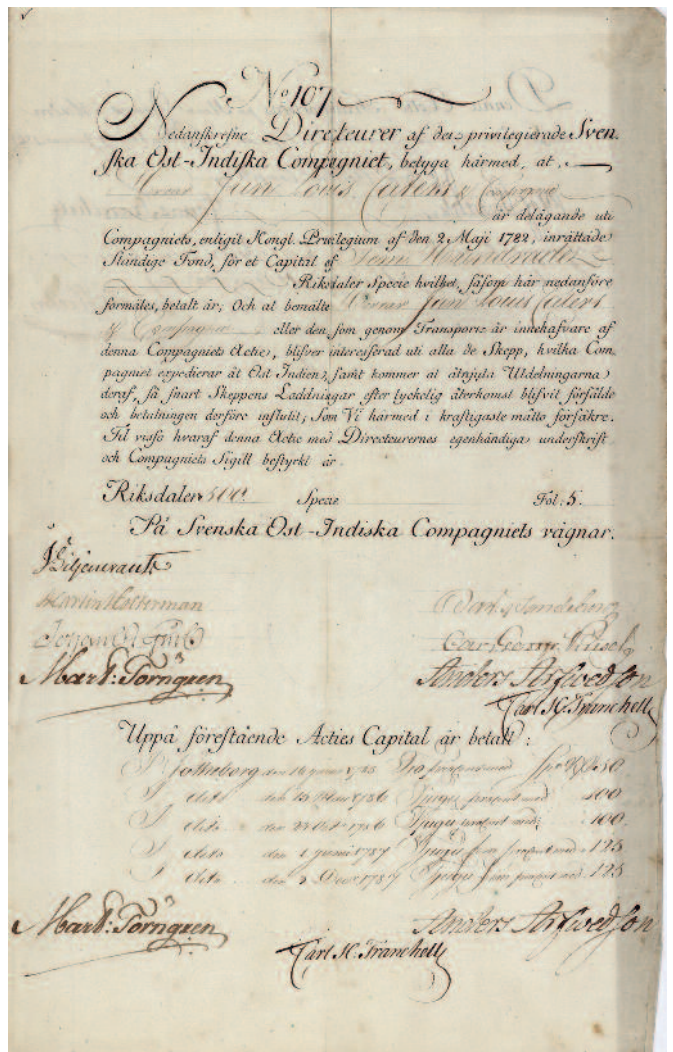 No 107
Nedanskrefne Directeurer af det privilegierade Sven-
ska Ost-Indiska Compagniet, betyga härmed, at
Herrar Jean Louis Caters & Compagnie
är delägande uti
Compagniets, enligit Kongl. Privilegium af den 2 Maji 1782, inrättade
Ständige Fond, för et Capital af Fem Hundrade
Riksdaler Specie hvilket, såsom här nedanföre
förmäles, betalt är; Och at bemälte Herrar Jean Louis Caters
& Compagnie, eller den som genom Transport är innehafvare af
denna Compagniets Actie, blifver interesserad uti alla de Skepp, hvilka Com-
pagniet expedierar åt Ost Indien, samt kommer at åtnjuta Utdelningarna
deraf, så snart Skeppens Laddningar efter lyckelig återkomst blifvit försålde
och betalningen derföre influtit; Som Vi härmed i kraftigaste måtto försäkre.
Til visso hvaraf denna Actie med Directeurernes egenhändiga underskrift
och Compagniets Sigill bestyrkt är.
Riksdaler 500 Specie Fol: 5.
På Svenska Ost-Indiska Compagniets vägnar.
Martin Holterman
Mart: Törngren Anders Arfwedson
Carl H: Tranchell
Uppå förestående Acties Capital är betalt:
Götheborg den 1785 Tio procent med 50
dito den 1786 Tjugu procent med 100
dito den 1786 Tjugu procent med 100
dito den 1 Junii 1787 Tjugu fem procent med 125
dito den 1787 Tjugu fem procent med 125
Mart: Törngren Anders Arfwedson
Carl H: Tranchell